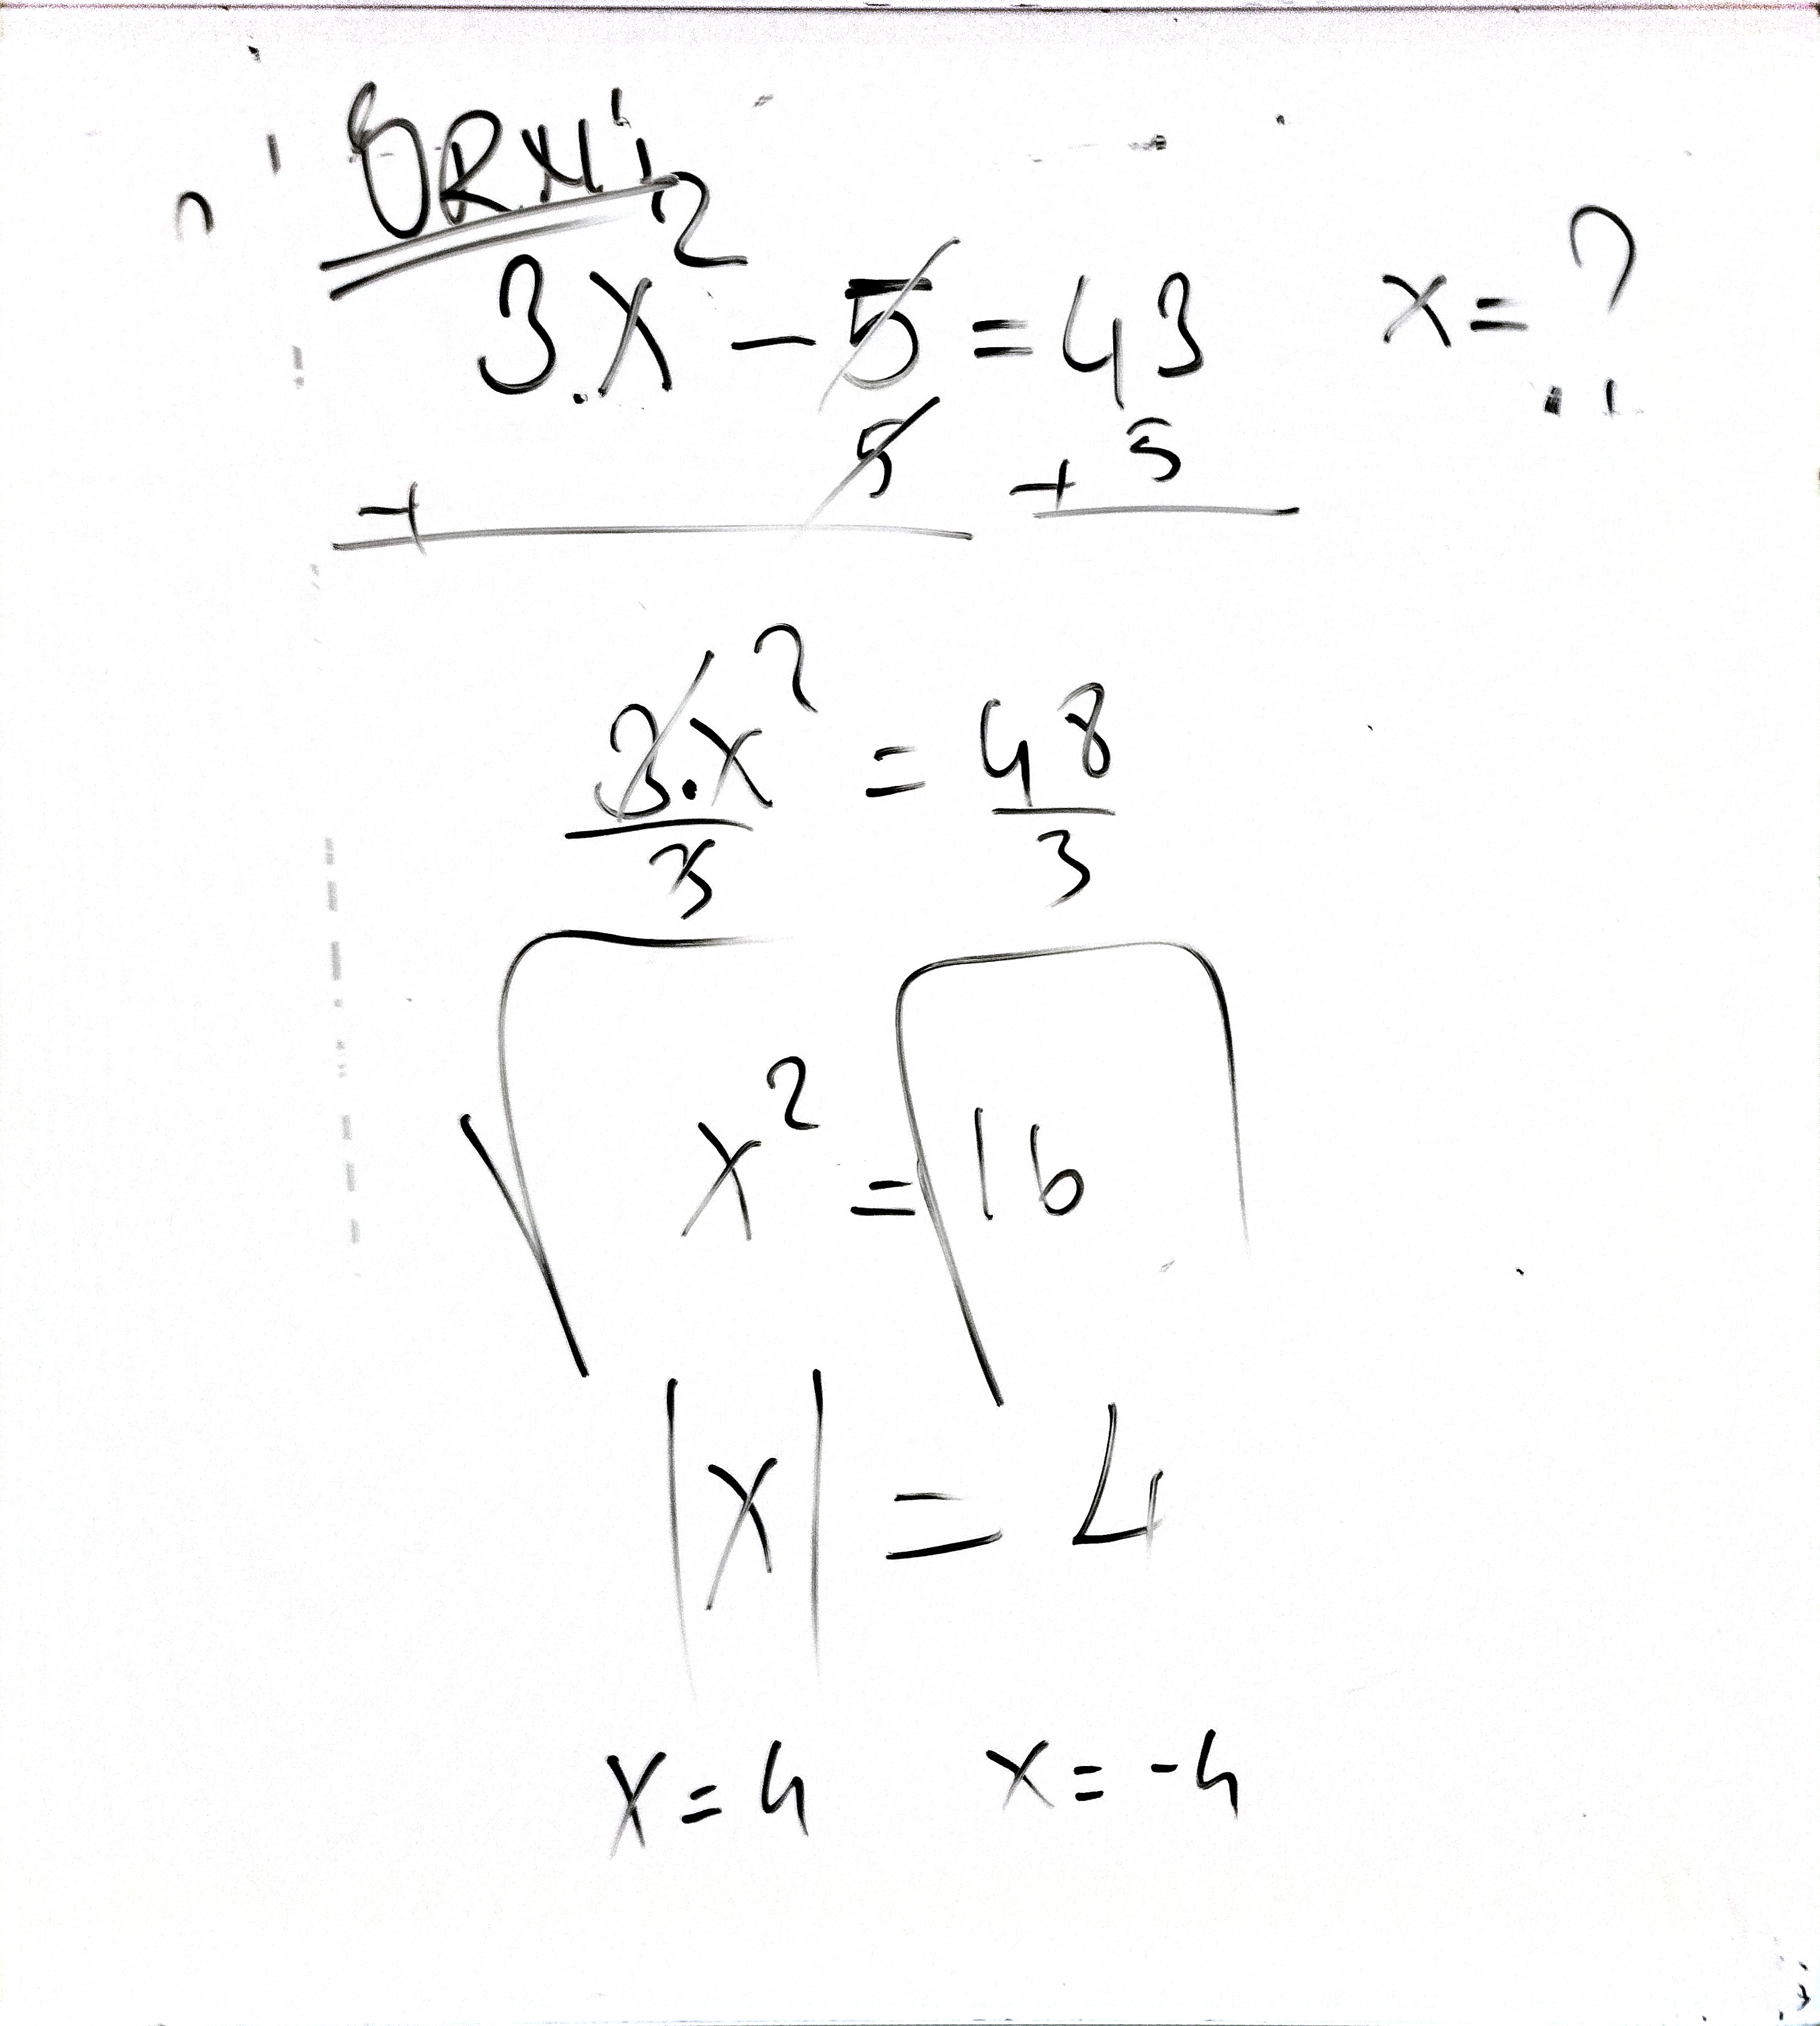 3.x² - 5 = 43 x = ?
+ 5 + 5
3.x² = 48
3 3
√x² = √16
|x| = 4
x = 4 x = -4